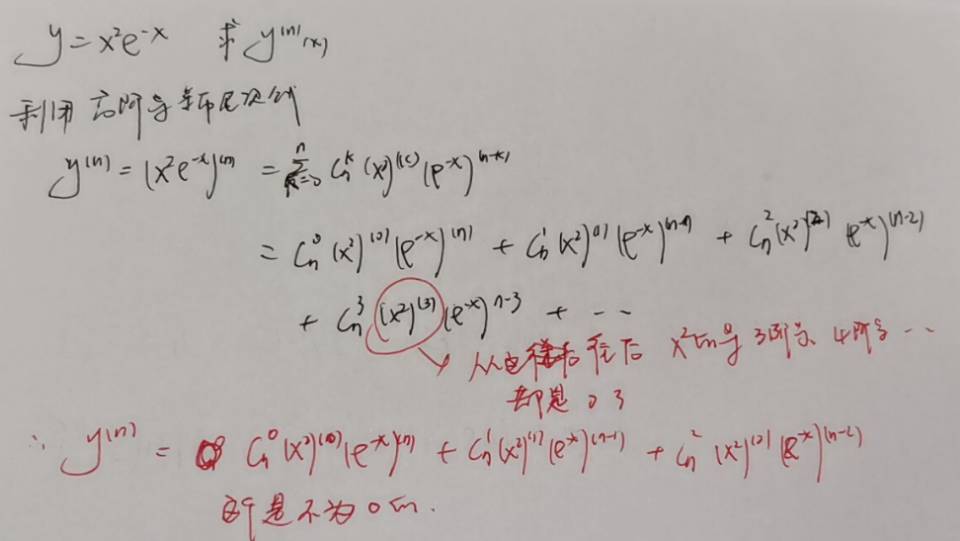 y=x²e^{-x} 求 y^{(n)}(x)
利用高阶导莱布尼茨公式
y^{(n)} = (x²e^{-x})^{(n)} = \sum_{k=0}^{n} C_n^k (x²)^{(k)} (e^{-x})^{(n-k)}
= C_n^0 (x²)^{(0)} (e^{-x})^{(n)} + C_n^1 (x²)^{(1)} (e^{-x})^{(n-1)} + C_n^2 (x²)^{(2)} (e^{-x})^{(n-2)}
+ C_n^3 (x²)^{(3)} (e^{-x})^{n-3} + ...
从这往后 x²的导 3阶导 4阶导 ...
都是 0 了
∴ y^{(n)} = C_n^0 (x²)^{(0)} (e^{-x})^{(n)} + C_n^1 (x²)^{(1)} (e^{-x})^{(n-1)} + C_n^2 (x²)^{(2)} (e^{-x})^{(n-2)}
是不为0的.